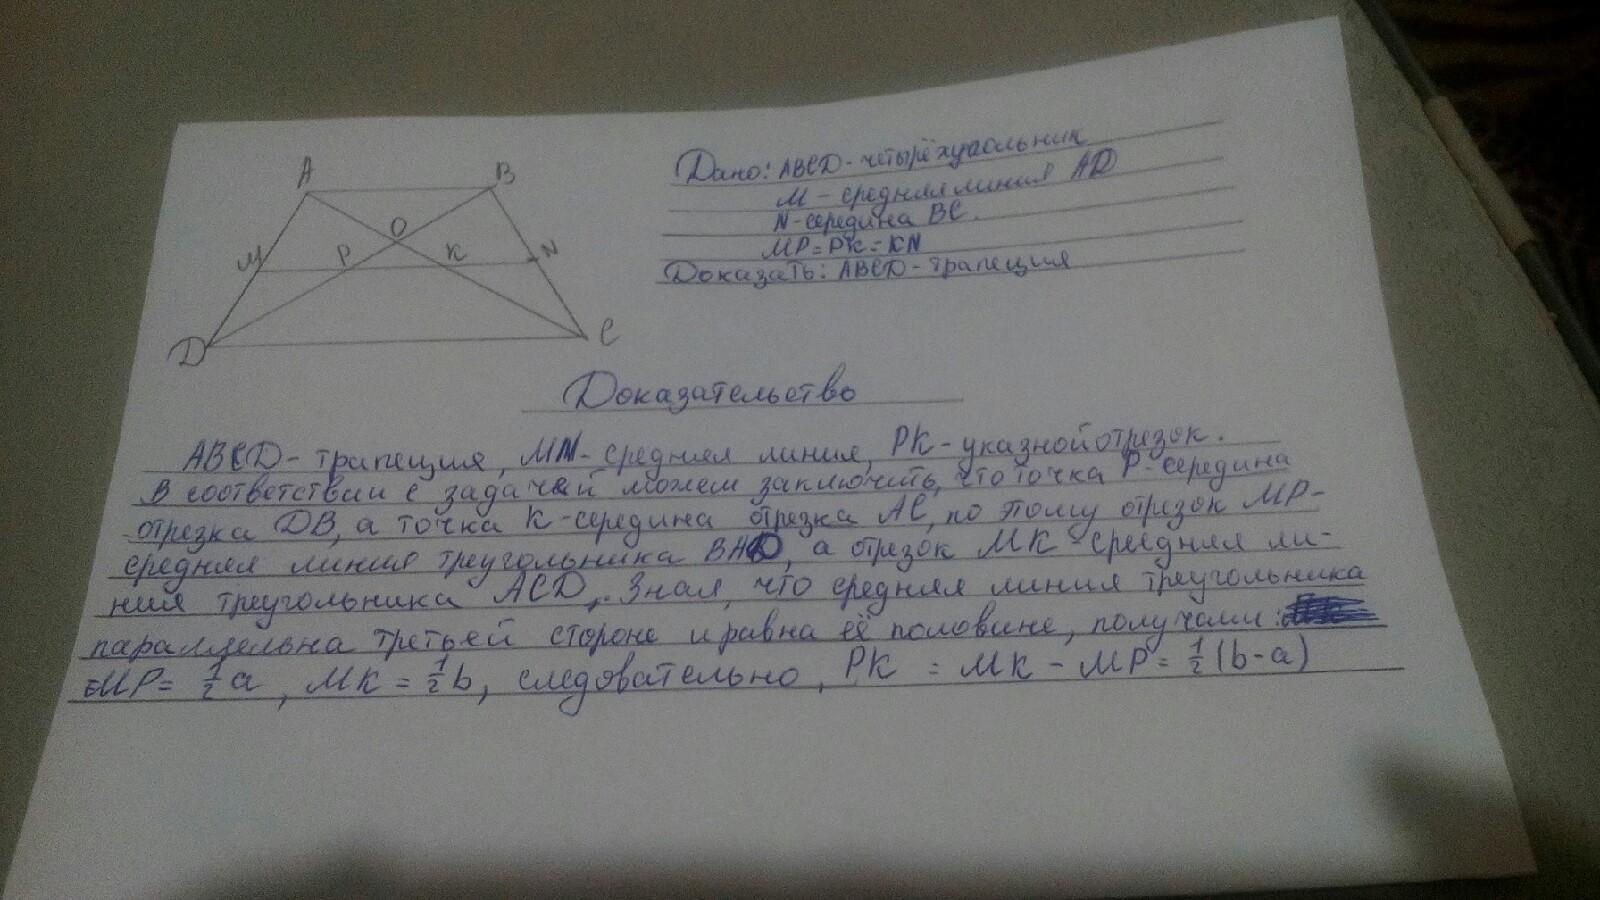 A
B
O
M
P
K
N
D
C
Дано: ABCD - четырёхугольник
M - средняя линия AD
N - середина BC.
MP = PK = KN
Доказать: ABCD - трапеция
Доказательство
ABCD - трапеция, MN - средняя линия, PK - указной отрезок.
В соответствии с задачей можем заключить, что точка P - середина
отрезка DB, а точка K - середина отрезка AC, по этому отрезок MP -
средняя линия треугольника BAD, а отрезок MK - средняя ли-
ния треугольника ACD. Зная, что средняя линия треугольника
параллельна третьей стороне и равна её половине, получаем:
MP = 1/2 a, MK = 1/2 b, следовательно, PK = MK - MP = 1/2 (b - a)